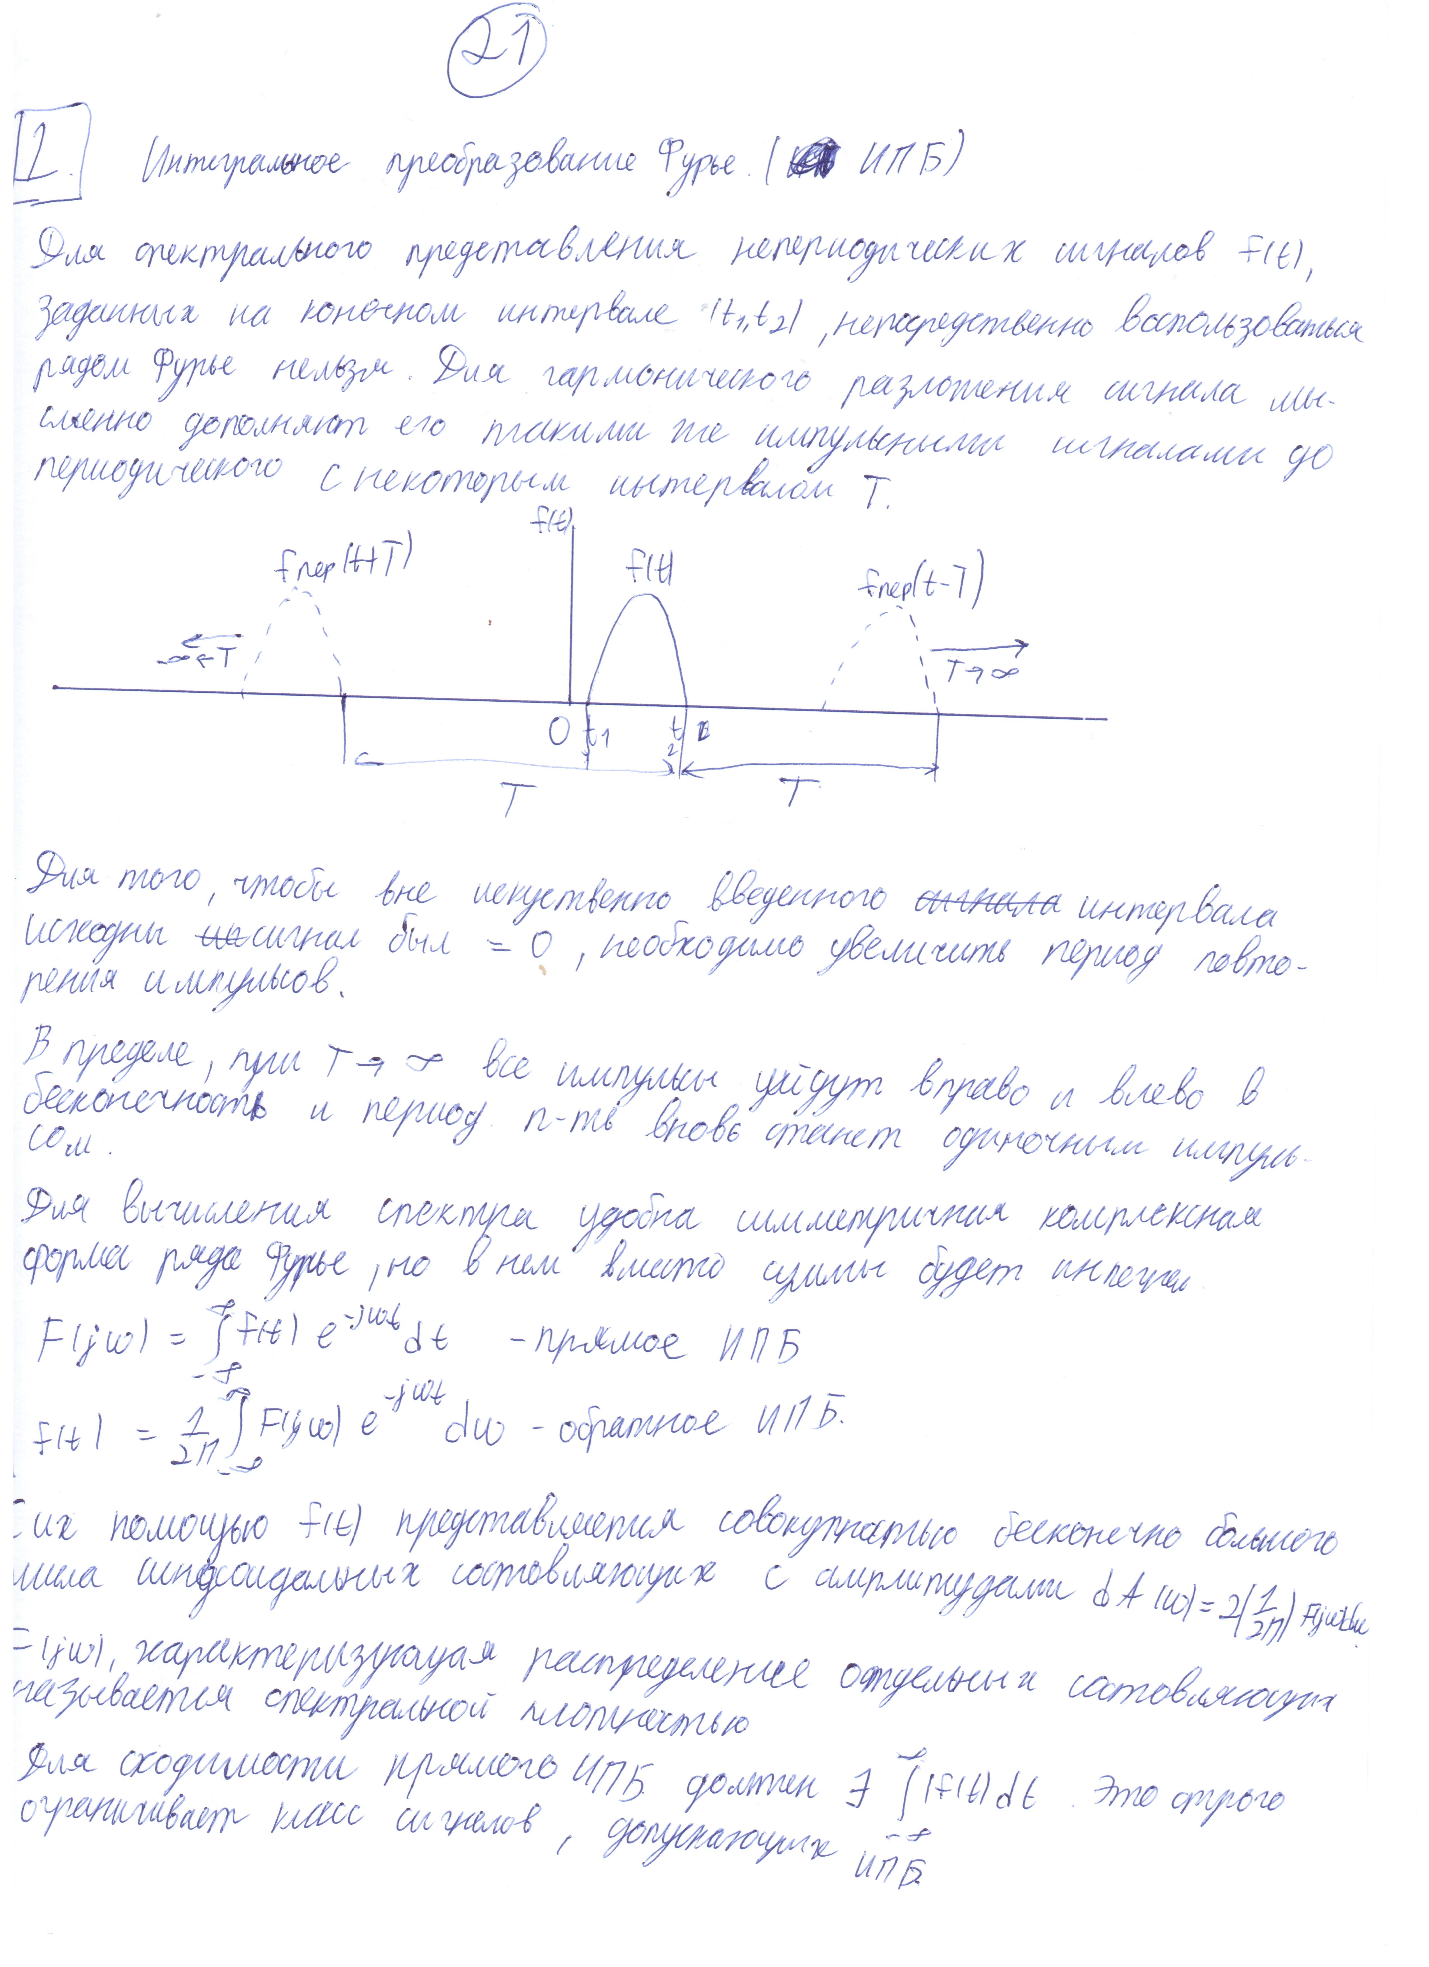 21
1.
Интегральное преобразование Фурье. ( ИПБ)
Для спектрального представления непериодических сигналов f(t),
заданных на конечном интервале (t1,t2), непосредственно воспользоваться
рядом Фурье нельзя. Для гармонического разложения сигнала мы-
сленно дополняют его такими же импульсными сигналами до
периодического с некоторым интервалом T.
f(t)
fпер(t+T) f(t) fпер(t-T)
∞←T T→∞
0 t1 t2
T T
Для того, чтобы вне искуственно введенного сигнала интервала
исходны сигнал был = 0, необходимо увеличить период повто-
рения импульсов.
В пределе, при T→∞ все импульсы уйдут вправо и влево в
бесконечность и период. п-ть вновь станет одиночным импуль-
сом.
Для вычисления спектра удобна симметричная комплексная
форма ряда Фурье, но в нем вместо суммы будет интеграл.
F(jω) = ∫_{-∞}^{∞} f(t) e^{-jωt} dt - прямое ИПБ
f(t) = 1/2П ∫_{-∞}^{∞} F(jω) e^{-jωt} dω - обратное ИПБ.
С их помощью f(t) представляется совокупностью бесконечно большого
числа синусоидальных составляющих с амплитудами dA(ω) = 2(1/2П) F(jω)dω
F(jω), характеризующая распределение отдельных составляющих
называется спектральной плотностью
Для сходимости прямого ИПБ должен ∃ ∫_{-∞}^{∞} |f(t) dt. Это строго
ограничивает класс сигналов, допускающих ИПБ.